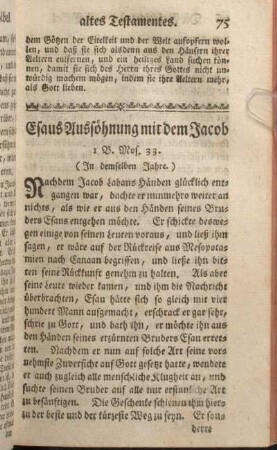 altes Testamentes. 75
dem Götzen der Eitelkeit und der Welt aufopfern wol-
len, und daß sie sich alsdenn aus den Häusern ihrer
Aeltern entfernen, und ein heiliges Land suchen kön-
nen, damit sie sich des Herrn ihres Gottes nicht un-
würdig machen mögen, indem sie ihre Aeltern mehr,
als Gott lieben.
Esaus Aussöhnung mit dem Jacob
1 B. Mos. 33.
(In demselben Jahre.)
Nachdem Jacob Labans Händen glücklich ent-
gangen war, dachte er nunmehro weiter an
nichts, als wie er aus den Händen seines Bru-
ders Esaus entgehen möchte. Er schickte deswe-
gen einige von seinen Leuten voraus, und ließ ihm
sagen, er wäre auf der Rückreise aus Mesopota-
mien nach Canaan begriffen, und ließe ihn bit-
ten seine Rückkunft genehm zu halten. Als aber
seine Leute wieder kamen, und ihm die Nachricht
überbrachten, Esau hätte sich so gleich mit vier
hundert Mann aufgemacht, erschrack er gar sehr,
schrie zu Gott, und bath ihn, er möchte ihn aus
den Händen seines erzürnten Bruders Esau erret-
ten. Nachdem er nun auf solche Art seine vor-
nehmste Zuversicht auf Gott gesetzt hatte, wendete
er auch zugleich alle menschliche Klugheit an, und
suchte seinen Bruder auf alle nur ersinnliche Art
zu besänftigen. Die Geschenke schienen ihm hier-
zu der beste und der kürzeste Weg zu seyn. Er son-
derte